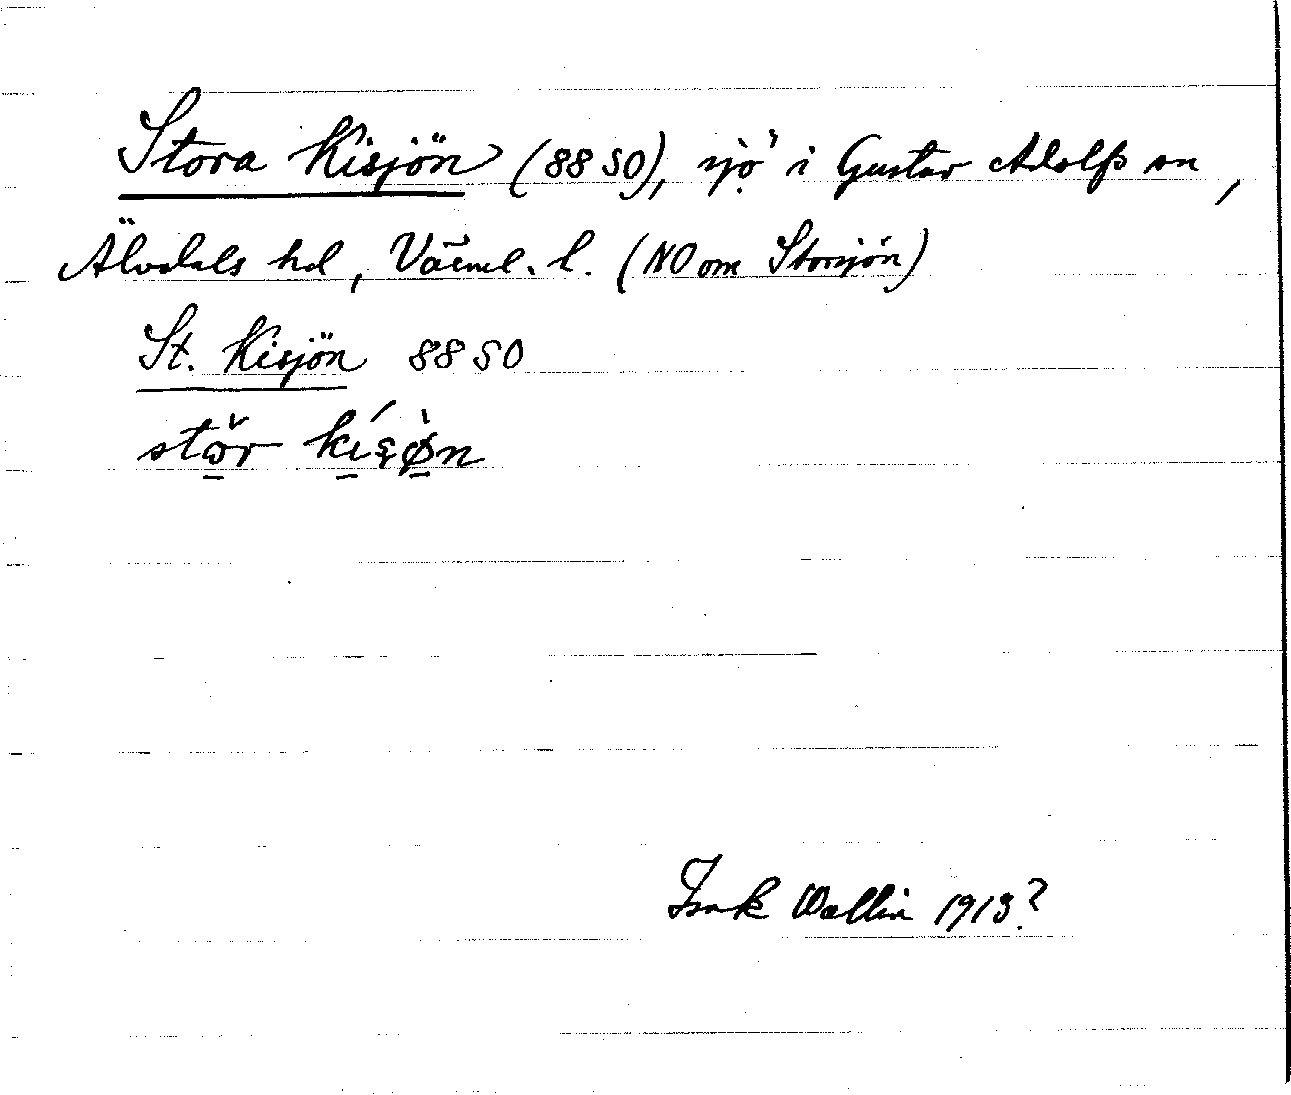 Stora Kisjön (88 SO), sjö i Gustav Adolfs sn,
Älvdals hd, Värml. l. (NO om Storsjön)
St. Kisjön 88 SO
Isak Wallin 1913?